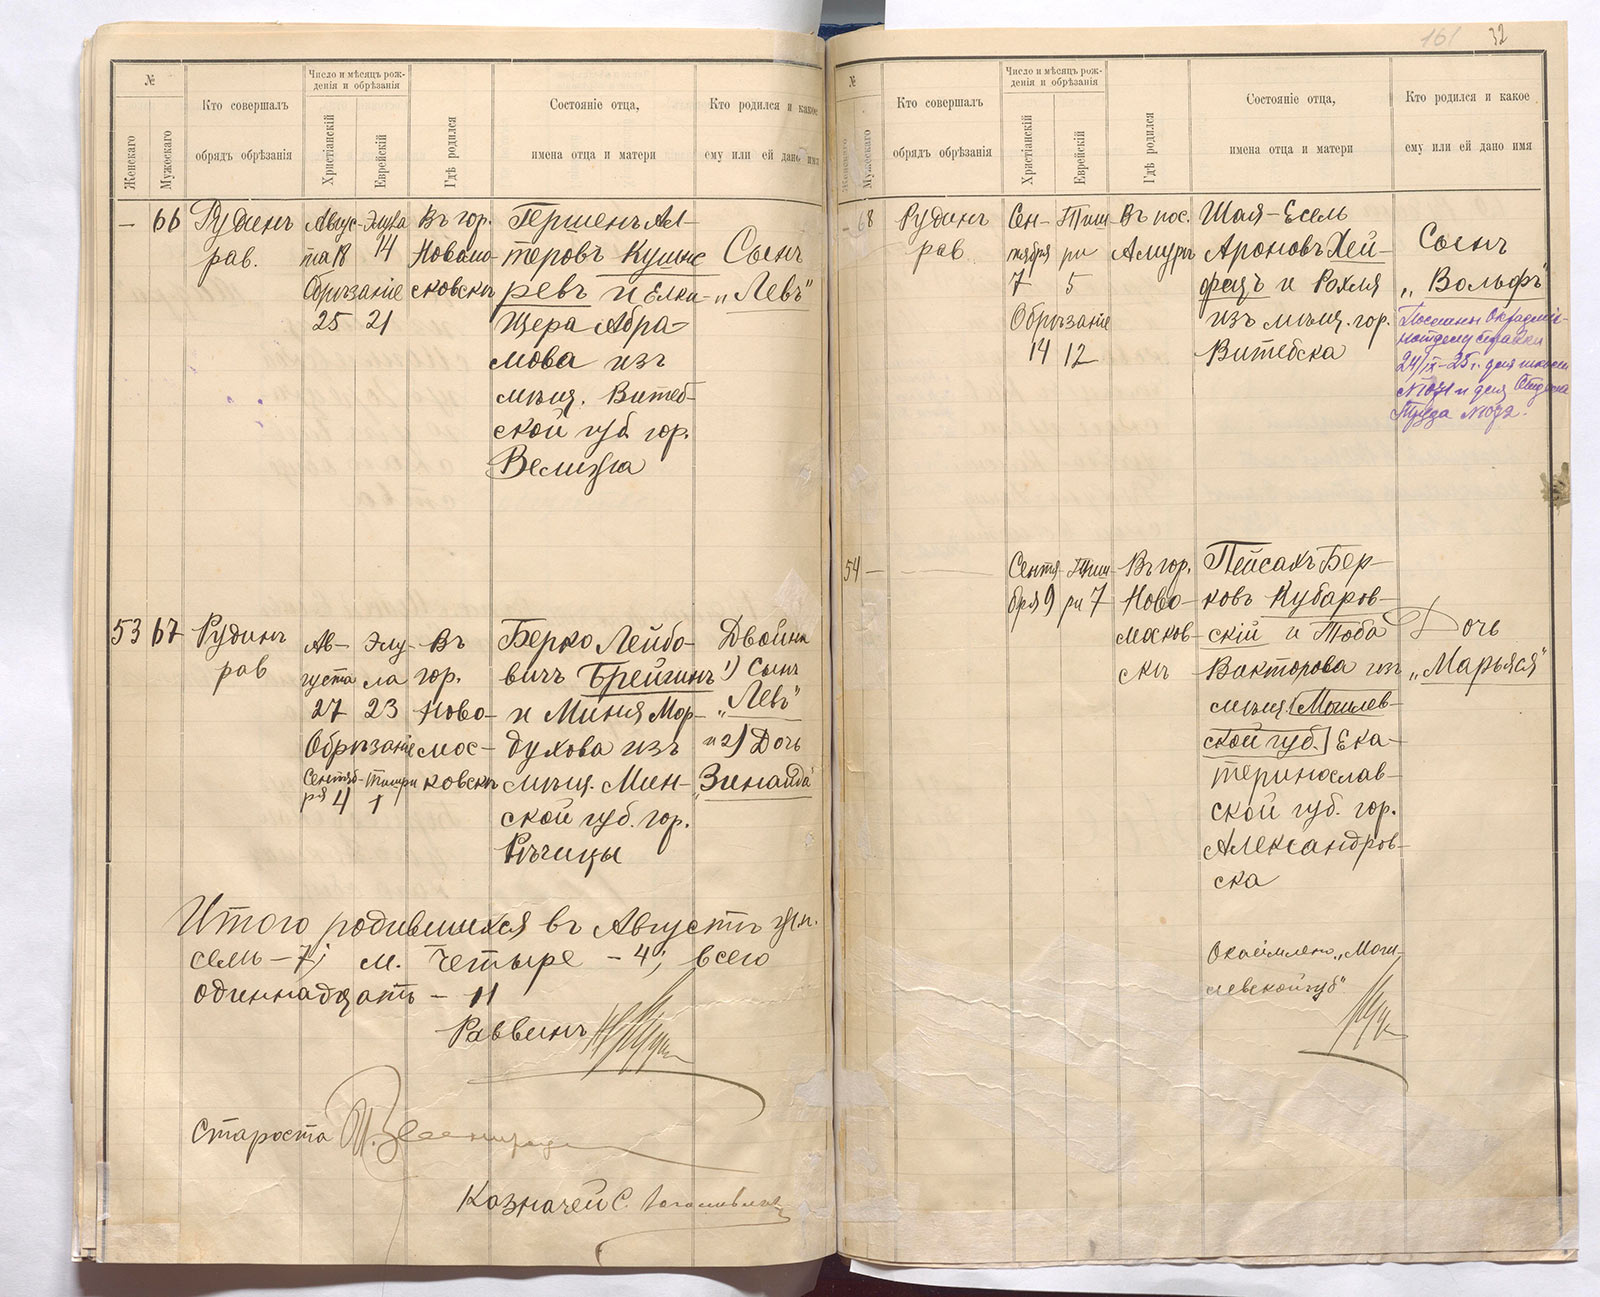 №
Женскаго
Мужескаго
Кто совершалъ
обрядъ обрѣзанія
Число и мѣсяцъ рож-
денія и обрѣзанія
Христіанскій
Еврейскій
Гдѣ родился
Состояніе отца,
имена отца и матери
Кто родился и какое
ему или ей дано имя
— 66
Рудинъ
рав.
Авгус-
та 18
Обрѣзаніе
25 21
Элула
14
Въ гор.
Новомо-
сковскѣ
Гершенъ Ал-
теровъ Кушне
ревъ и Елка-
Цера Абра-
мова изъ
мѣщ. Витеб-
ской губ. гор.
Велижа
Сынъ
„Левъ"
53 67
Рудинъ
рав
Ав-
густа
27
Обрѣзаніе
Сентяб-
ря 4
Элу-
ла
23
Тишри
1
Въ
гор.
Ново-
мос-
ковскѣ
Берко Лейбо-
вичъ Брейгинъ
и Миня Мор-
духова изъ
мѣщ. Мин-
ской губ. гор.
Рѣчицы
Двойни
1) Сынъ
„Левъ"
и 2) Дочь
„Зинаида"
Итого родившихся въ Августѣ
семь – 7; м. Четыре – 4; всего
одиннадцать – 11
Раввинъ
Староста
Казначей С.
161 32
№
Женскаго
Мужескаго
Кто совершалъ
обрядъ обрѣзанія
Число и мѣсяцъ рож-
денія и обрѣзанія
Христіанскій
Еврейскій
Гдѣ родился
Состояніе отца,
имена отца и матери
Кто родился и какое
ему или ей дано имя
— 68
Рудинъ
рав
Сен-
тября
7
Обрѣзаніе
14 12
Тиш
ри
5
Въ пос.
Амурѣ
Шая-Есель
Ароновъ Хей-
фецъ и Рохля
изъ мѣщ. гор.
Витебска
Сынъ
„Вольфъ"
24/IX–25 г. для
№1071 и для Отдела
Труда №1072.
54 —
Сентя
бря 9
Тиш
ри 7
Въ гор.
Ново-
москов-
скѣ
Пейсахъ Бер-
ковъ Кубаров-
скій и Тоба
Викторова изъ
мѣщ. (Могилев-
ской губ.) Ека-
теринослав-
ской губ. гор.
Александров-
ска
Дочь
„Марьяся"
Окаймлено „Моги-
левской губ"